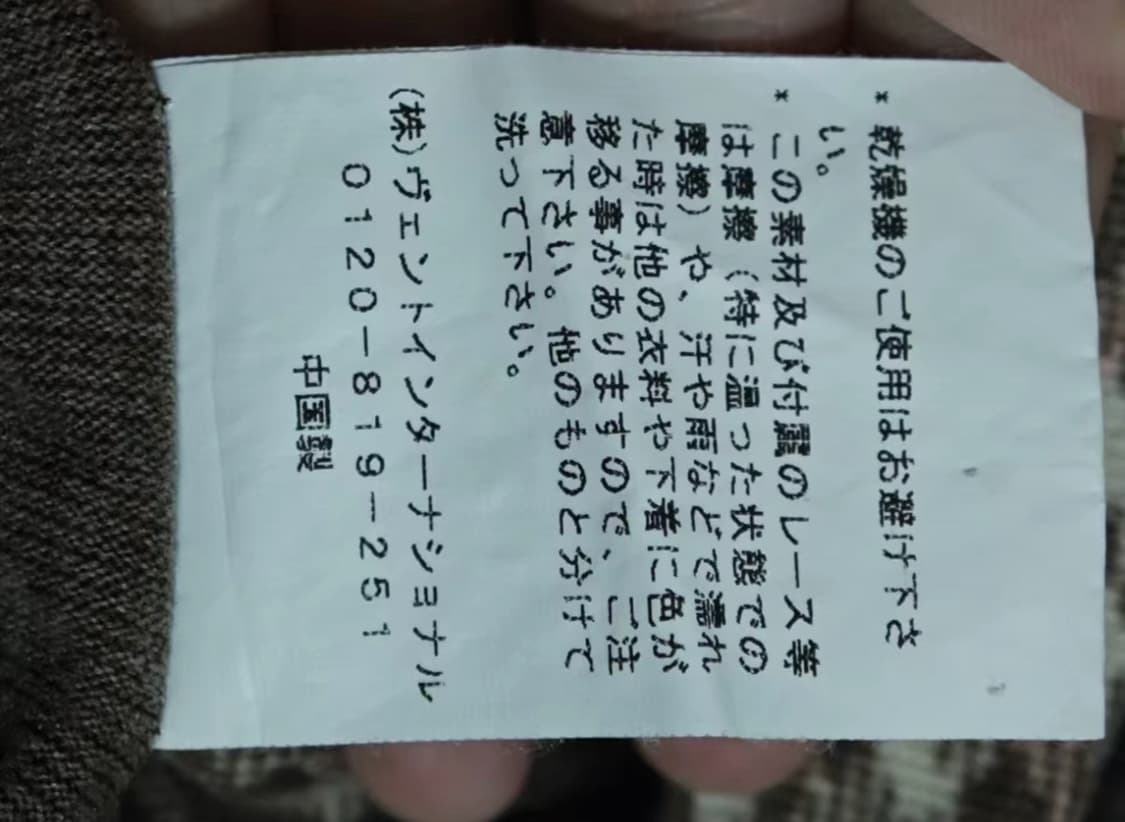 * 乾燥機のご使用はお避け下さ
い。
* この素材及び付属のレース等
は摩擦（特に温った状態での
摩擦）や、汗や雨などで濡れ
た時は他の衣料や下着に色が
移る事がありますので、ご注
意下さい。他のものと分けて
洗って下さい。
(株)ヴェントインターナショナル
0120-819-251
中国製